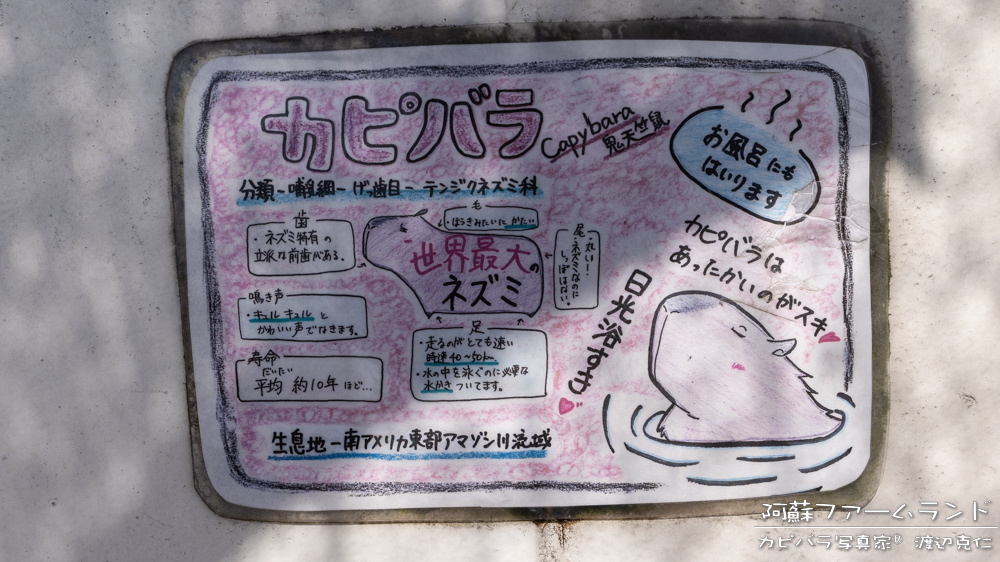 カピバラ
Capybara
鬼天竺鼠
分類-哺乳綱-げっ歯目-テンジクネズミ科
お風呂にも
はいります
毛
・ほうきみたいにかたい
歯
・ネズミ特有の
立派な前歯がある。
世界最大の
ネズミ
尾
・丸い!
・ネズミなのに
しっぽはない。
カピバラは
あったかいのがスキ
日光浴すき
鳴き声
・キュルキュルと
かわいい声でなきます。
足
・走るのがとても速い
時速40~50km
・水の中を泳ぐのに必要な
水かきついてます。
寿命
だいたい
平均 約10年ほど…
生息地-南アメリカ東部アマゾン川流域
阿蘇ファームランド
カピバラ写真家® 渡辺克仁